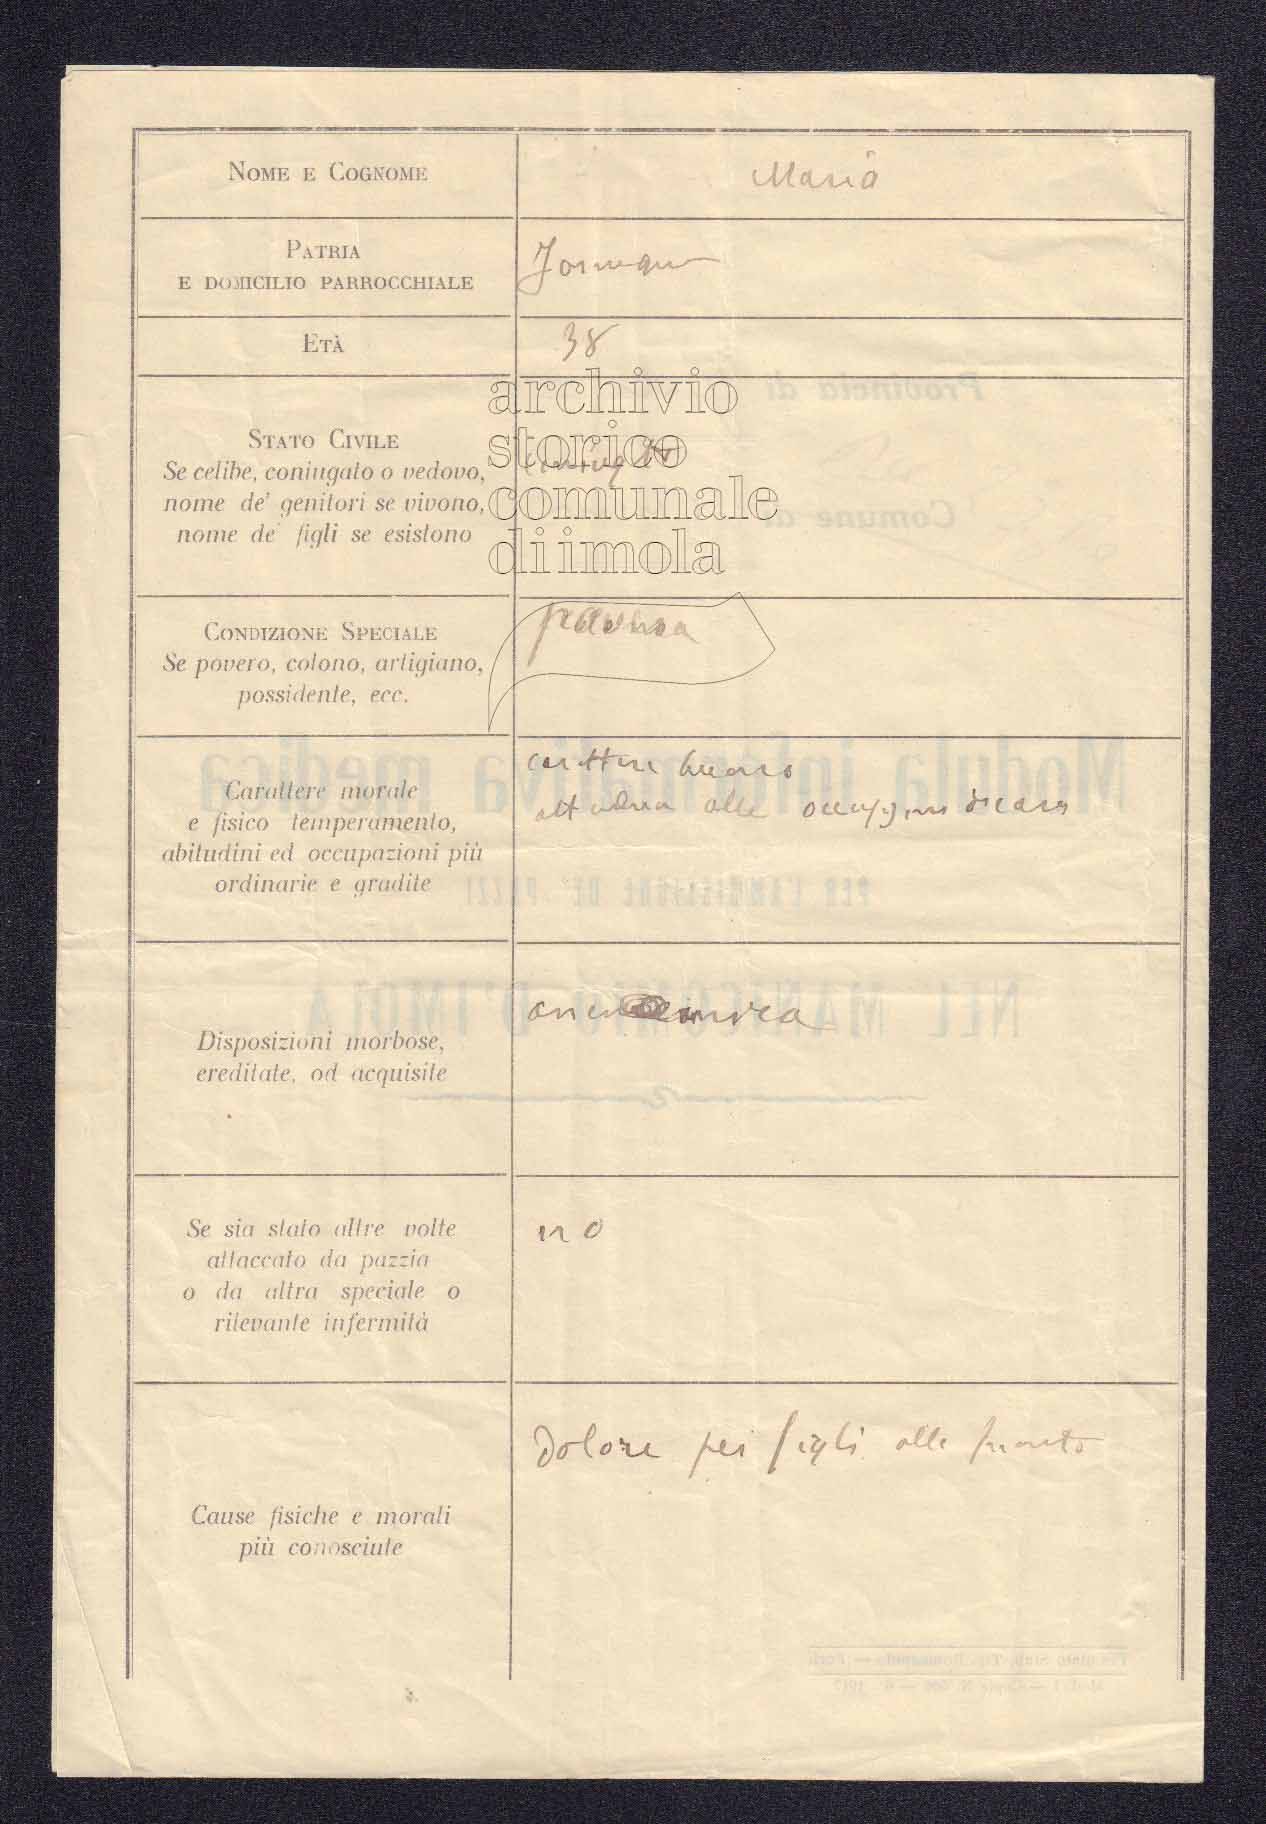 NOME E COGNOME
Maria
PATRIA
E DOMICILIO PARROCCHIALE
ETÀ
38
STATO CIVILE
Se celibe, coniugato o vedovo,
nome de' genitori se vivono,
nome de' figli se esistono
archivio
storico
comunale
di imola
CONDIZIONE SPECIALE
Se povero, colono, artigiano,
possidente, ecc.
Carattere morale
e fisico temperamento,
abitudini ed occupazioni più
ordinarie e gradite
carattere buono
alle
Disposizioni morbose,
ereditate, od acquisite
Se sia stato altre volte
attaccato da pazzia
o da altra speciale o
rilevante infermità
no
Cause fisiche e morali
più conosciute
Dolore pei figli alle fronte
Provincia di
Comune di
Modula informativa medica
PER L'AMMISSIONE DE' PAZZI
NEL MANICOMIO D'IMOLA